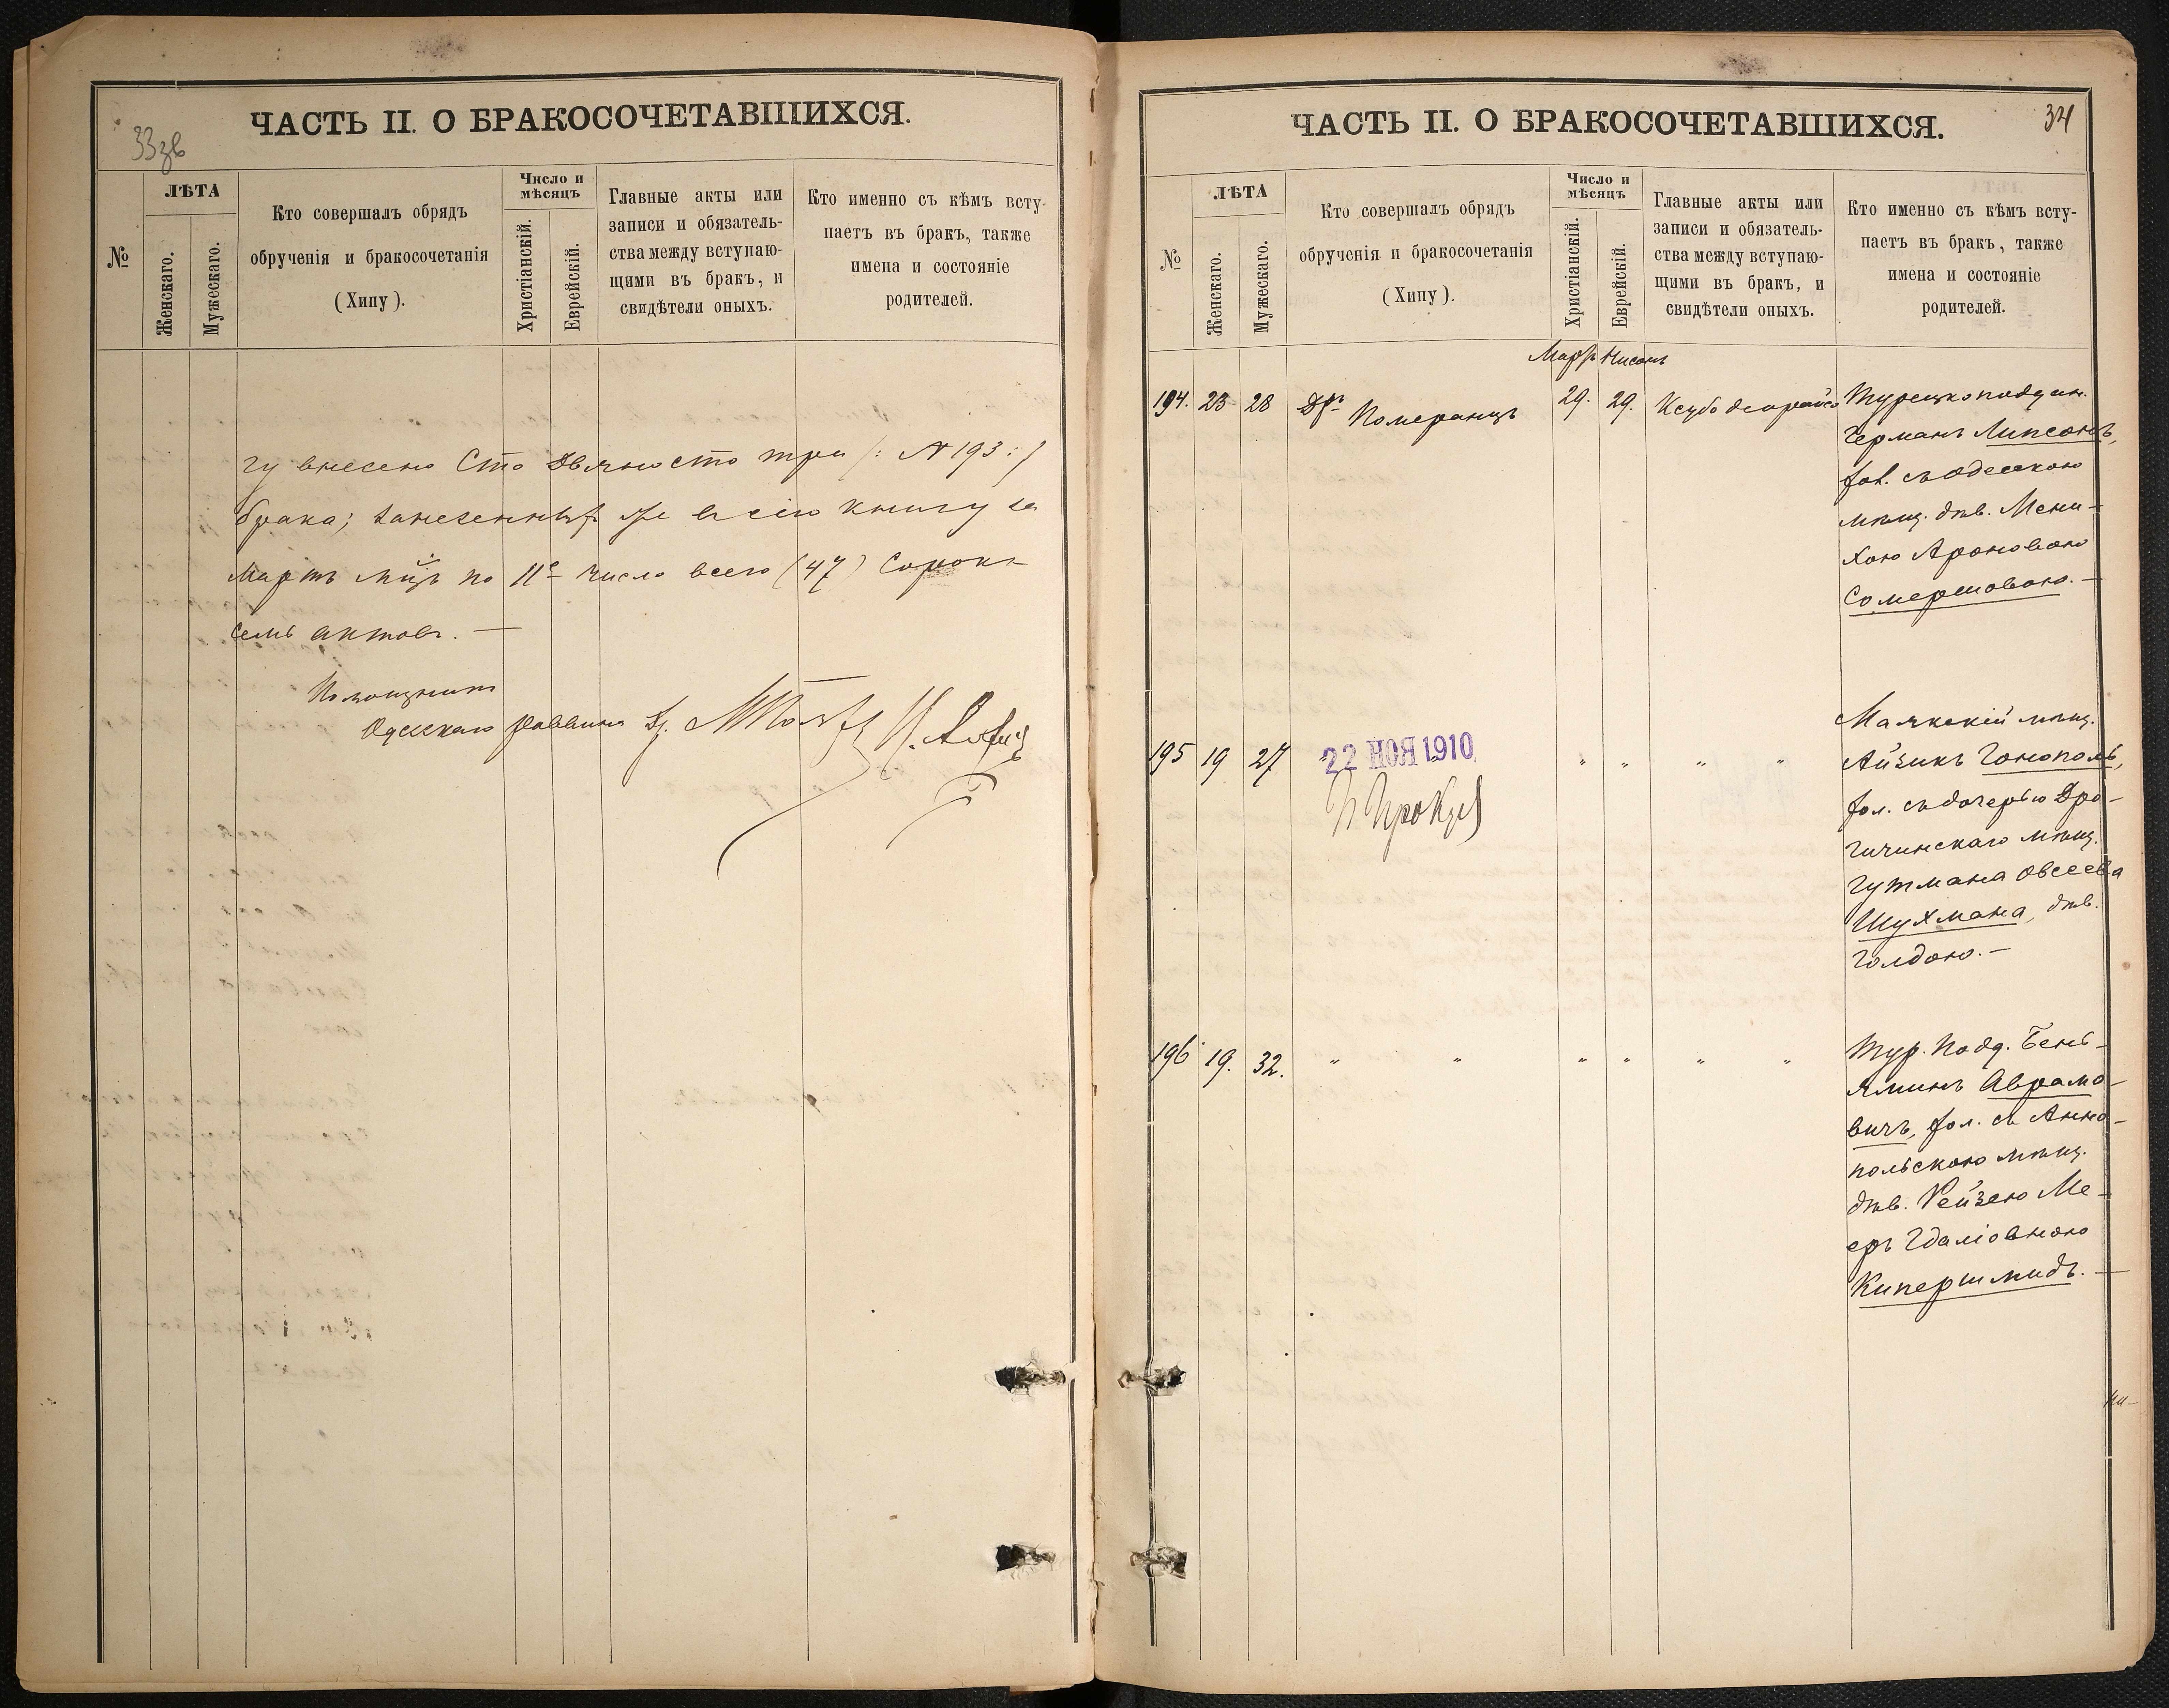 ЧАСТЬ II. О БРАКОСОЧЕТАВШИХСЯ.
33
№
ЛѢТА
Женскаго.
Мужескаго.
Кто совершалъ обрядъ
обрученія и бракосочетанія
(Хипу).
Число и
мѣсяцъ
Христіанскій.
Еврейскій.
Главные акты или
записи и обязатель-
ства между вступаю-
щими въ бракъ, и
свидѣтели оныхъ.
Кто именно съ кѣмъ всту-
паетъ въ бракъ, также
имена и состояніе
родителей.
гу внесено Сто Девяносто три /: N 193 :/
брака; занесенныхъ же въ сію книгу за
Мартъ мцъ по 11е число всего (47) Сорокъ
семь актовъ. —
Помощникъ
Одесскаго раввина
ЧАСТЬ II. О БРАКОСОЧЕТАВШИХСЯ.
34
№
ЛѢТА
Женскаго.
Мужескаго.
Кто совершалъ обрядъ
обрученія и бракосочетанія
(Хипу).
Число и
мѣсяцъ
Христіанскій.
Еврейскій.
Главные акты или
записи и обязатель-
ства между вступаю-
щими въ бракъ, и
свидѣтели оныхъ.
Кто именно съ кѣмъ всту-
паетъ въ бракъ, также
имена и состояніе
родителей.
Мартъ Нисанъ
194. 23 28 Дръ Померанцъ 29. 29. Ксубо деорайсо
Турецкоподдан.
Германъ Липсонъ,
хол. съ Одесскою
мѣщ. дѣв. Мени-
хою Ароновою
Сомершовою. —
195 19 27 " " " "
22 НОЯ 1910
Маякскій мѣщ.
Айзикъ Гонополь,
хол. съ дочерью Дро-
гичинскаго мѣщ.
Гутмана Овсеева
Шухмана, дѣв.
Голдою. —
196 19. 32. " " " " " "
Тур. подд. Бень-
яминъ Аврамо-
вичъ, хол. съ Анно-
польскою мѣщ.
дѣв. Рейзею Ме-
еръ Гдаліовною
Кипершмидъ. —